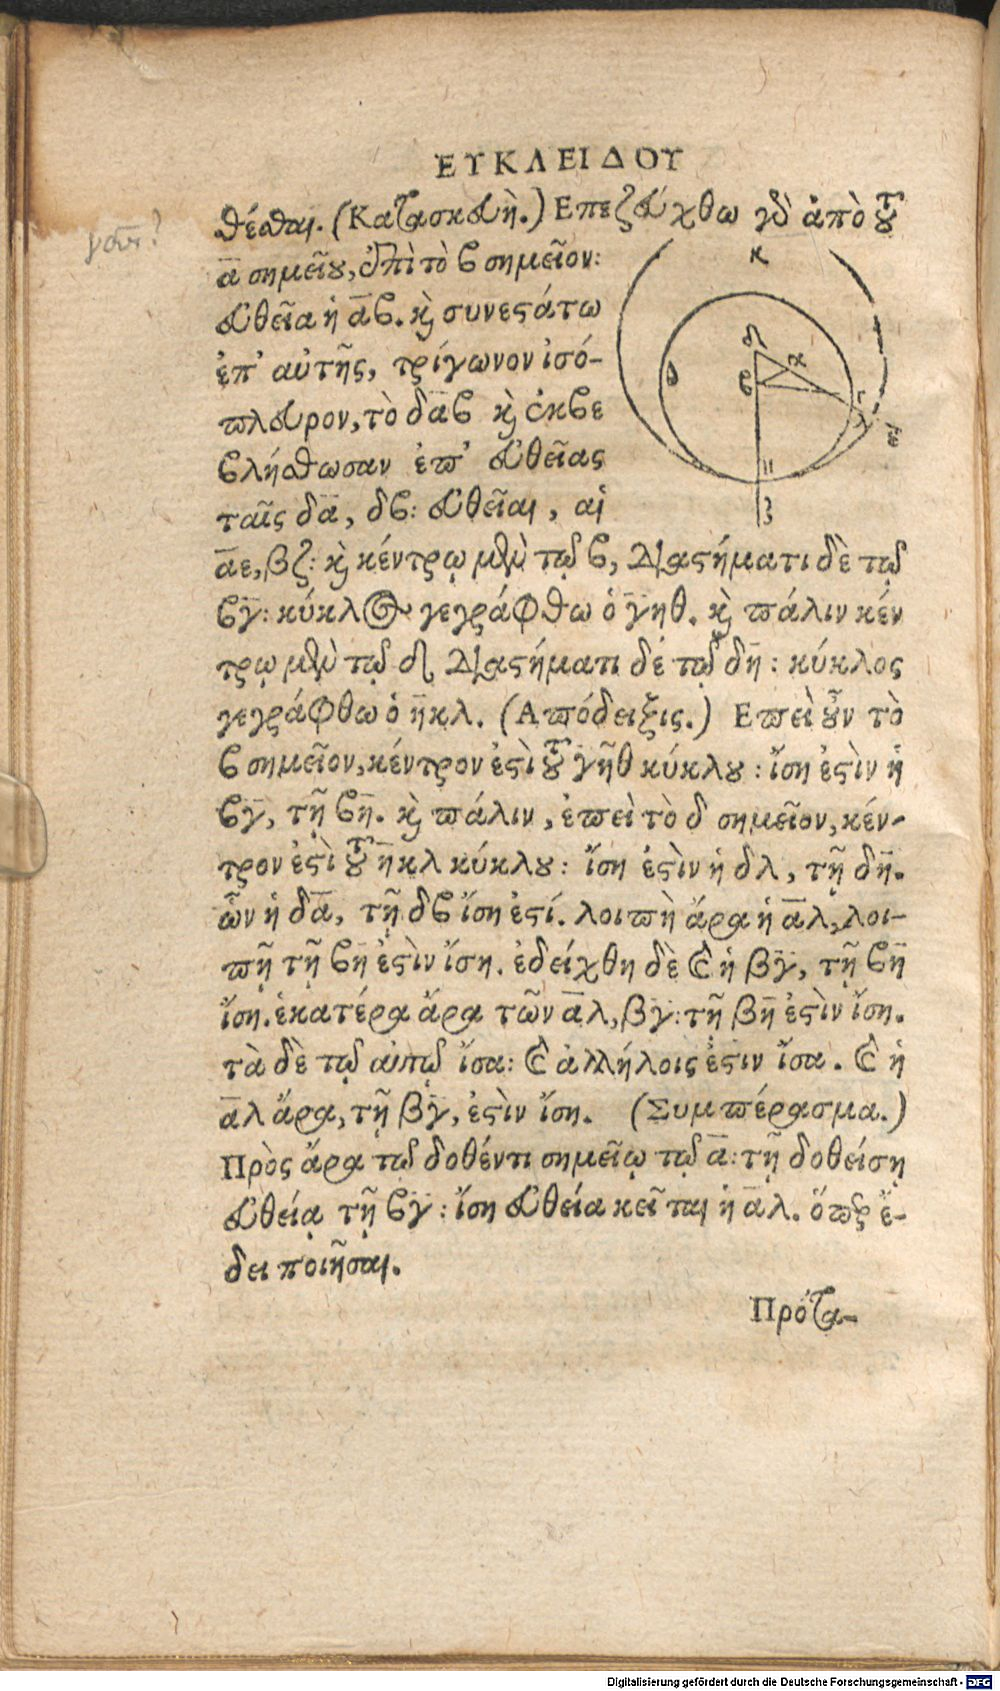 ΕΥΚΛΕΙΔΟΥ
θέσθαι. (Κατασκευὴ.) Επεζεύχθω γὰρ ἀπὸ τοῦ
α̅ σημείου, ἐπὶ τὸ β σημεῖον:
εὐθεῖα ἡ α̅β. καὶ συνεστάτω
ἐπ' αὐτῆς, τρίγωνον ἰσό-
πλευρον, τὸ δα̅β καὶ ἐκβε
βλήσθωσαν ἐπ' εὐθείας
ταῖς δα̅, δβ: εὐθεῖαι, αἱ
α̅ε, βζ: καὶ κέντρῳ μὲν τῷ β, διαστήματι δὲ τῷ
βγ̅: κύκλος γεγράφθω ὁ γ̅ηθ. καὶ πάλιν κέν
τρῳ μὲν τῷ δ, διαστήματι δὲ τῷ δη̅: κύκλος
γεγράφθω ὁ η̅κλ. (Απόδειξις.) Επεὶ οὖν τὸ
β σημεῖον, κέντρον ἐστὶ τοῦ γη̅θ κύκλου: ἴση ἐστὶν ἡ
βγ̅, τῇ βη̅. καὶ πάλιν, ἐπεὶ τὸ δ σημεῖον, κέν-
τρον ἐστὶ τοῦ η̅κλ κύκλου: ἴση ἐστὶν ἡ δλ, τῇ δη̅.
ὧν ἡ δα̅, τῇ δβ ἴση ἐστί. λοιπὴ ἄρα ἡ α̅λ, λοι-
πῇ τῇ βη̅ ἐστὶν ἴση. ἐδείχθη δὲ καὶ ἡ βγ̅, τῇ βη̅
ἴση. ἑκατέρα ἄρα τῶν α̅λ, βγ̅: τῇ βη̅ ἐστὶν ἴση.
τὰ δὲ τῷ αὐτῷ ἴσα: καὶ ἀλλήλοις ἐστιν ἴσα. καὶ ἡ
α̅λ ἄρα, τῇ βγ̅, ἐστὶν ἴση. (Συμπέρασμα.)
Πρὸς ἄρα τῷ δοθέντι σημείῳ τῷ α̅: τῇ δοθείσῃ
εὐθείᾳ τῇ βγ̅: ἴση εὐθεία κεῖται ἡ α̅λ. ὅπερ ἔ-
δει ποιῆσαι.
Πρότα-
κ
δ
α
θ
β
γ
λ
ε
η
ζ
Digitalisierung gefördert durch die Deutsche Forschungsgemeinschaft - DFG